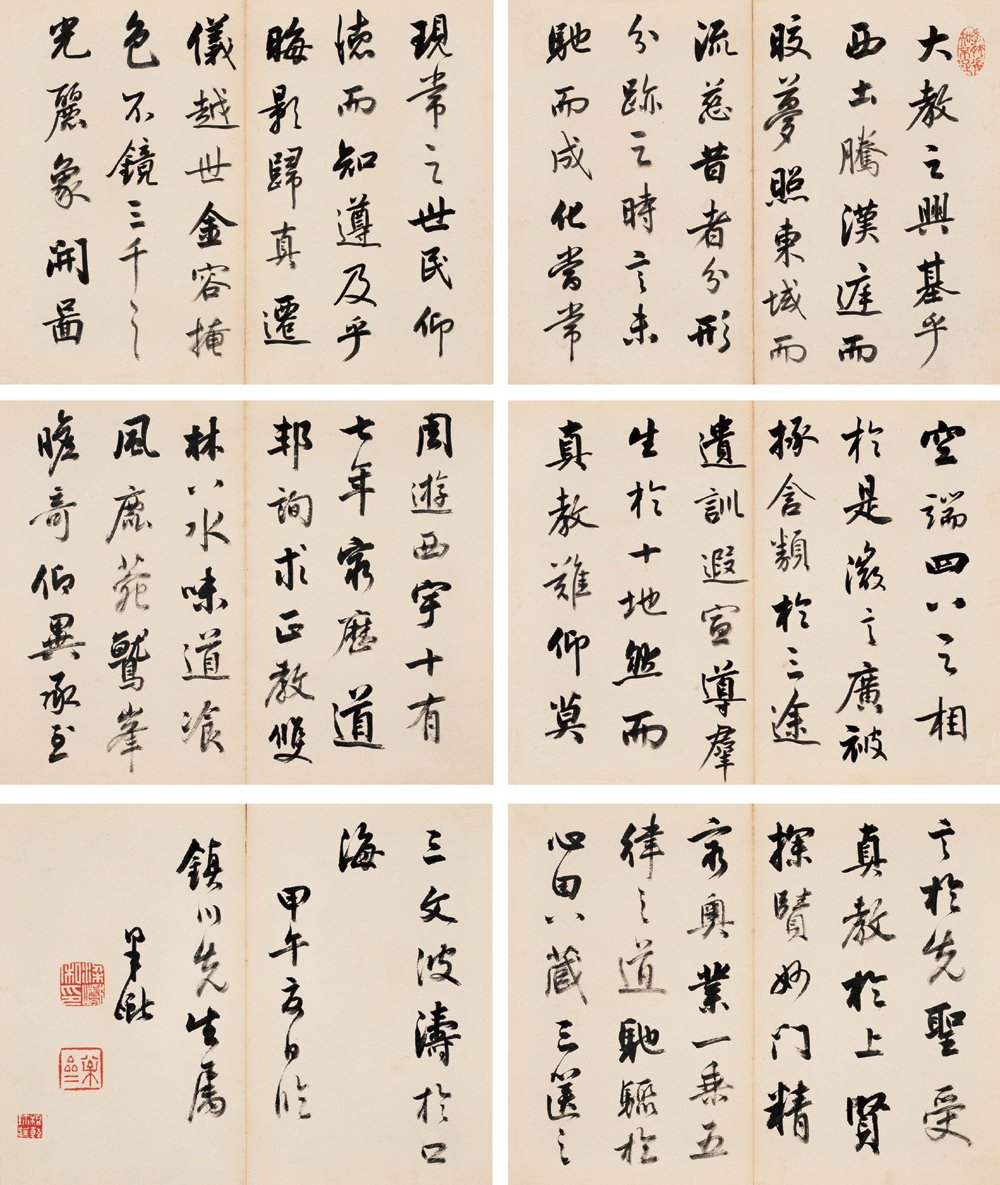 大教之興基乎
西土騰漢庭而
皎夢照東域而
流慈昔者分形
分跡之時言未
馳而成化當常
現常之世民仰
德而知遵及乎
晦影歸真遷
儀越世金容掩
色不鏡三千之
光麗象開圖
空端四八之相
於是微言廣被
拯含類於三途
遺訓遐宣導羣
生於十地然而
真教難仰莫
周遊西宇十有
七年窮歷道
邦詢求正教雙
林八水味道飡
風鹿菀鷲峯
瞻奇仰異承至
言於先聖受
真教於上賢
探賾妙門精
窮奧業一乘五
律之道馳驟於
心田八藏三篋之
三文波濤於口
海
甲午夏日臨
鎮川先生属